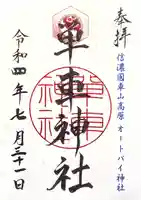 奉拝
信濃國車山高原 オートバイ神社
單車神社
令和四年七月三十一日